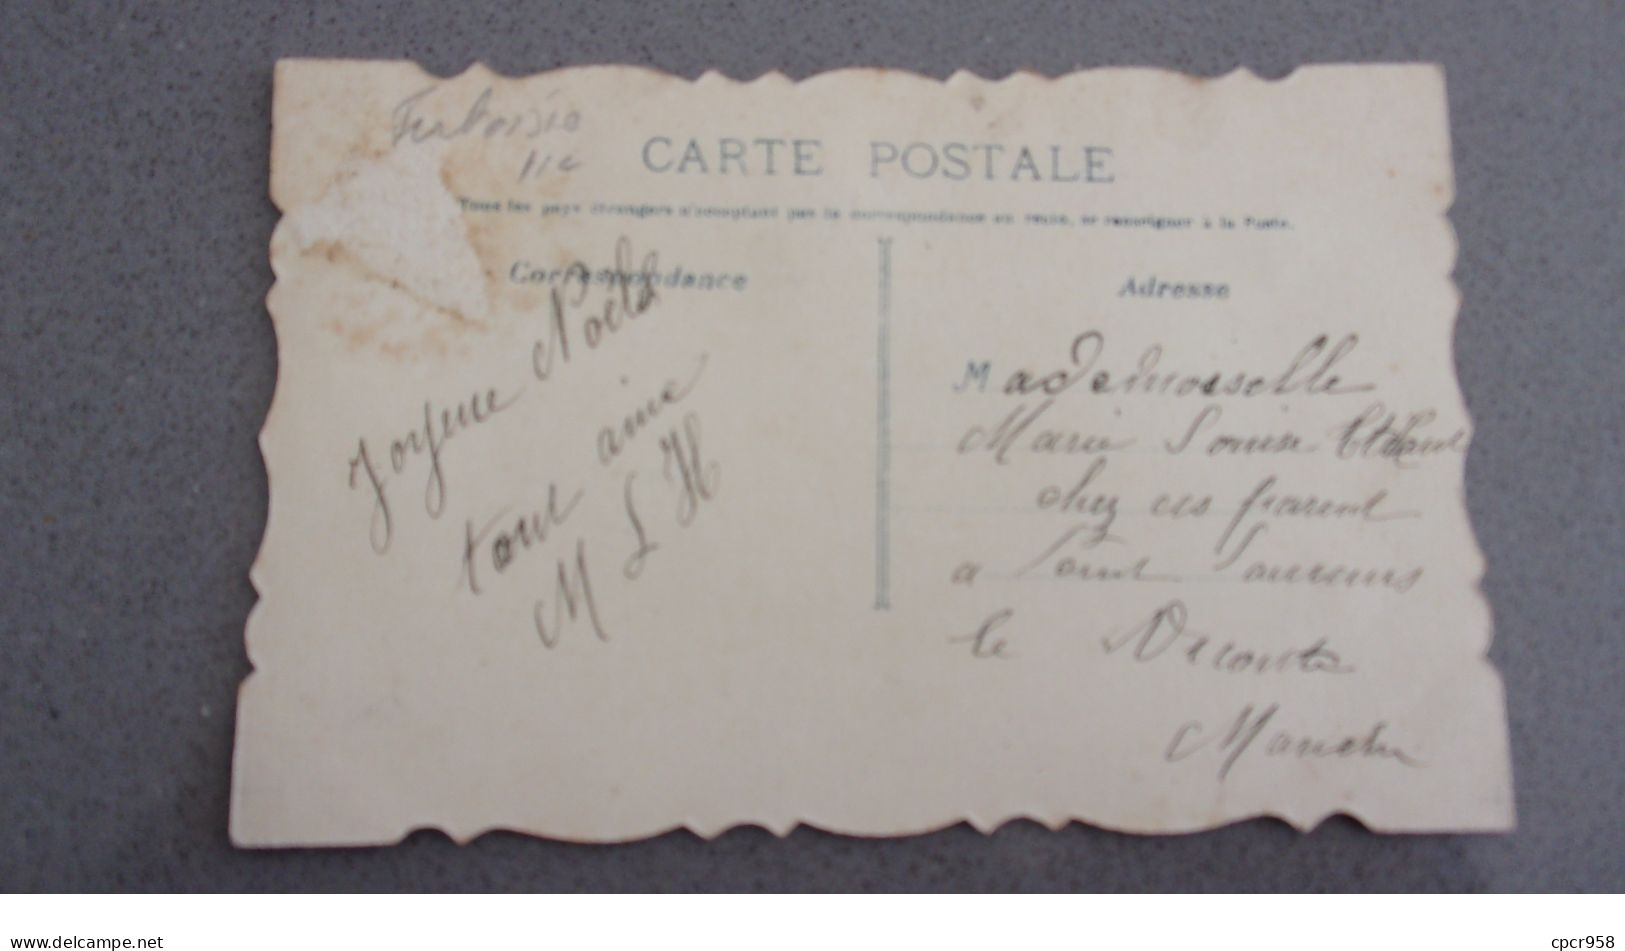 CARTE POSTALE
Tous les pays étrangers n'acceptant pas la correspondance au recto, se renseigner à la Poste.
Correspondance
Adresse
Joyeue Noël
tout aime
M L H
Mademoiselle
Marie Louise
chez ces parent
a Saint Sauveur
le Vicomte
Manche
delcampe.net
cpcr958